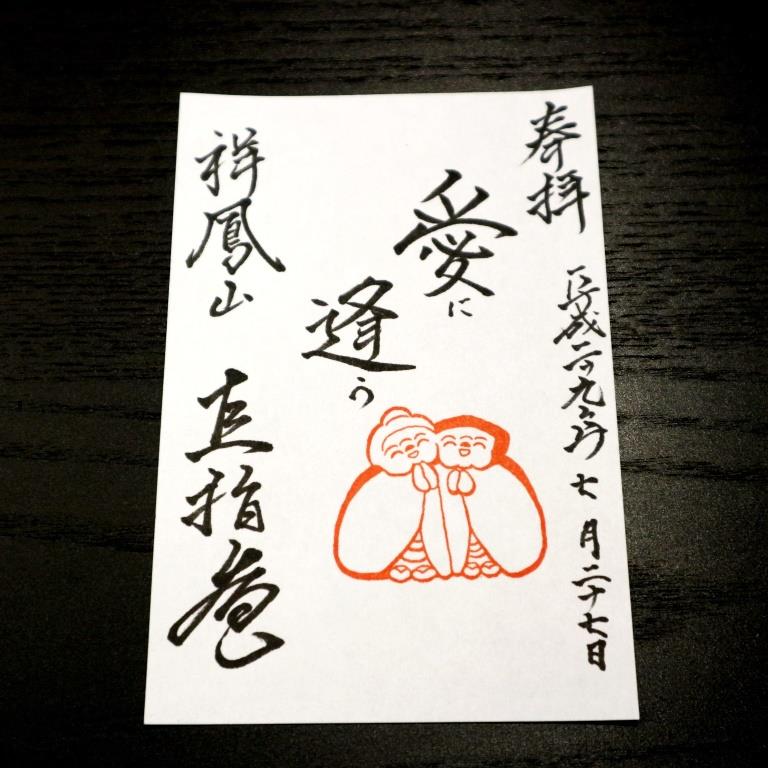 奉拝
平成二十九年七月二十七日
愛に
逢う
祥鳳山
直指庵